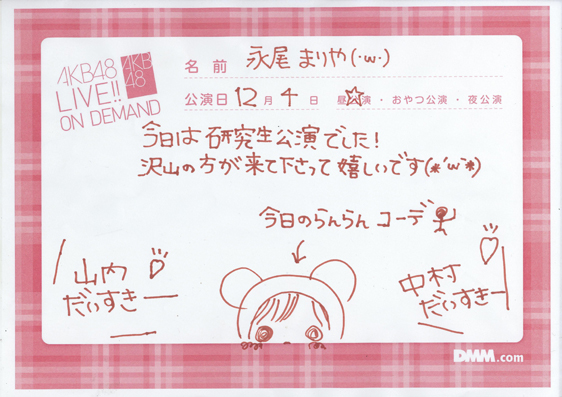 AKB48
LIVE!!
ON DEMAND
AKB
48
名前 永尾まりや(・ω・)
公演日 12月4日 昼公演・おやつ公演・夜公演
今日は研究生公演でした!
沢山の方が来て下さって嬉しいです(*´ω`*)
今日のらんらんコーデ
山内
だいすきー
中村
だいすきー
DMM.com